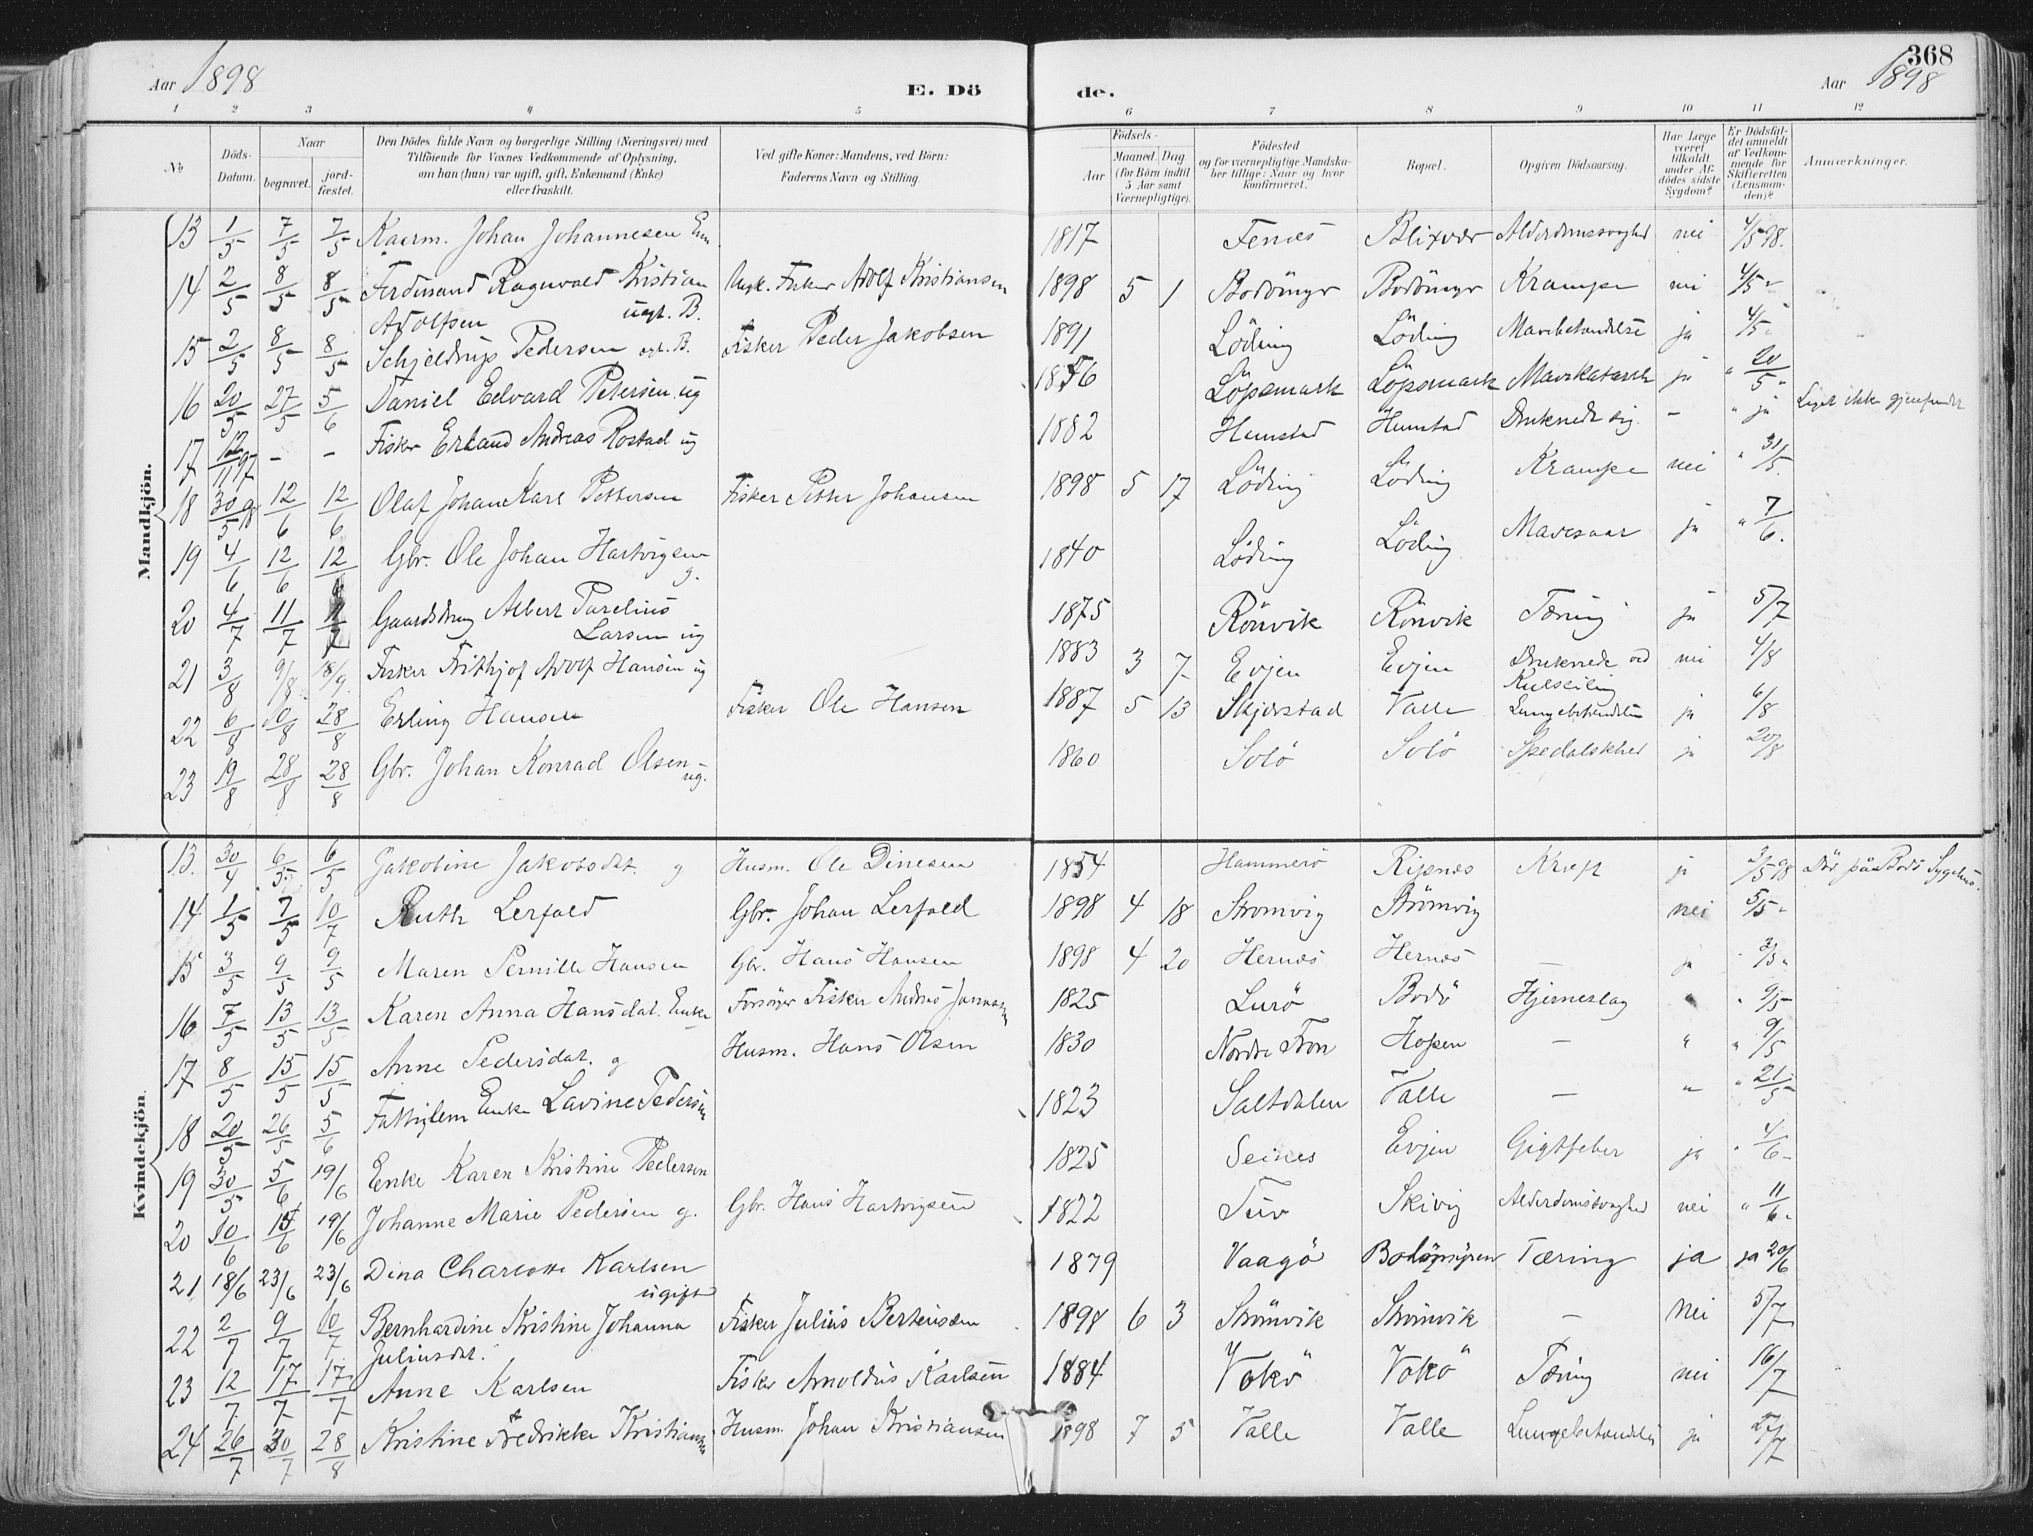 Aar 1898
E. Dö de.
368
Aar 1898
1 2 3 4 5 6 7 8 9 10 11 12
No
Döds-Datum.
Naar
begravet.
jord-fæstet.
Den Dödes fulde Navn og borgerlige Stilling (Næringsvei) med
Tilföiende for Voxnes Vedkommende af Oplysning,
om han (hun) var ugift, gift, Enkemand (Enke)
eller fraskilt.
Ved gifte Koner: Mandens, ved Börn:
Faderens Navn og Stilling.
Födsels-
Aar
Maaned. Dag
(for Börn indtil
5 Aar samt
Værnepligtige).
Födested
og for værnepligtige Mandska-
ber tillige: Naar og hvor
konfirmeret.
Bopæl.
Opgiven Dödsaarsag.
Har Læge
været
tilkaldt
under Af-
dödes sidste
Sygdom?
Er Dödsfal-
det anmeldt
af Vedkom-
mende for
Skifteretten
(Lensman-
den)?
Anmærkninger.
Mandkjön.
13 1/5 7/5 7/5 Kaarm. Johan Johannesen Em 1817 Fenes Blixvær Alderdomssvaghed nei 4/5 98.
14 2/5 8/5 8/5 Ferdinand Ragnvald Kristian Ungk. Fisker Adolf Kristiansen 1898 5 1 Bodömyr Bodömyr Krampe nei 4/5 "
Adolfsen ugt. B.
15 2/5 8/5 8/5 Schjeldrup Pedersen ugt. B. Fisker Peder Jakobsen 1891 Löding Löding Mavebetændelse ja 4/5 "
16 20/5 27/5 5/6 Daniel Edvard Petersen ug 1856 Löpsmark Löpsmark Mavekatarrh ja " 20/5 "
17 12/11 97 - - Fisker Erland Andreas Rostad ug 1882 Hunstad Hunstad Druknede sig. - " ja Liget ikke gjenfundet
18 30/5 98 12/6 12/6 Olaf Johan Karl Pettersen Fisker Petter Johansen 1898 5 17 Löding Löding Krampe nei " 31/5.
19 4/6 12/6 12/6 Gbr. Ole Johan Hartvigsen g. 1840 Löding Löding Mavesaar ja " 7/6.
20 4/7 11/7 11/7 Gaardsdreng Albert Parelius 1875 Rönvik Rönvik Tæring ja 5/7
Larsen ug
21 3/8 9/8 18/9. Fisker Frithjof Adolf Hansen ug 1883 3 7 Evjen Evjen Druknede ved nei 4/8
Kulseiling
22 6/8 10/8 28/8 Erling Hansen Fisker Ole Hansen 1887 5 13 Skjerstad Valle Lungebetændelse ja 6/8
23 19/8 28/8 28/8 Gbr. Johan Konrad Olsen ug. 1860 Solö Solö Spedalskhed ja 20/8
Kvindekjön.
13. 30/4 6/5 6/5 Jakobine Jakobsdat. g Husm. Ole Dinesen 1854 Hammerö Ripnes Kræft ja 3/5 98 Död paa Bodö Sygehus.
14 1/5 7/5 10/7 Ruth Lerfald Gbr. Johan Lerfald 1898 4 18 Strömvig Strömvig nei 5/5 "
15 3/5 9/5 9/5 Maren Pernille Hansen Gbr. Hans Hansen 1898 4 20 Hernes Hernes - ja " 3/5 "
16 7/5 13/5 13/5 Karen Anna Hansdat. Enke Forsörger Fisker Andreas 1825 Lurö Bodö Hjerneslag " " 9/5
17 8/5 15/5 15/5 Anne Pedersdat. g Husm. Hans Olsen 1830 Nordre Fron Hopen - " " 9/5
18 20/5 26/5 5/6 Fattiglem Enke Lavine Pedersen 1823 Saltdalen Valle - " " 21/5
19 30/5 5/6 19/6 Enke Karen Kristine Pedersen 1825 Seines Evjen Gigtfeber ja " 4/6 -
20 10/6 15/6 19/6 Johanne Marie Pedersen g. Gbr. Hans Hartvigsen 1822 Tuv Skivig Alderdomssvaghed nei " 11/6 -
21 18/6 23/6 23/6 Dina Charlotte Karlsen 1879 Vaagö Bodömyren Tæring ja ja 20/6
ugift
22 2/7 9/7 10/7 Bernhardine Kristine Johanna Fisker Julius Berteussen 1898 6 3 Strömvik Strömvik - Nei 5/7
Juliusdat.
23 12/7 17/7 17/7 Anne Karlsen Fisker Arnoldus Karlsen 1884 Vokö Vokö Tæring nei 16/7
24 26/7 30/7 28/8 Kristine Fredrikke Kristiansen Husm. Johan Kristiansen 1898 7 5 Valle Valle Lungebetændelse ja 27/7